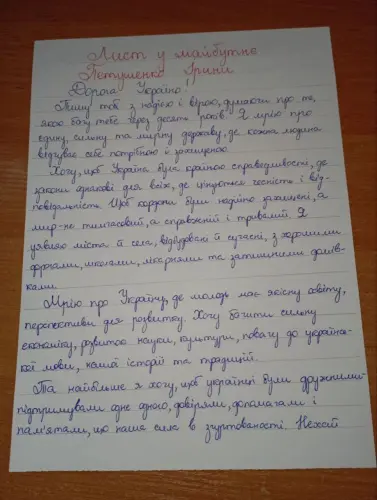 Лист у майбутнє
Петушенко Ірини
Дорога Україно!
Пишу тобі з надією і вірою, думаючи про те,
якою бачу тебе через десять років. Я мрію про
єдину, сильну та мирну державу, де кожна людина
відчуває себе потрібною й захищеною.
Хочу, щоб Україна була країною справедливості, де
закони однакові для всіх, де цінуються чесність і від-
повідальність. Щоб кордони були надійно захищені, а
мир - не тимчасовий, а справжній і тривалий. Я
уявляю міста й села, відбудовані й сучасні, з хорошими
дорогами, школами, лікарнями та затишними домів-
ками.
Мрію про Україну, де молодь має якісну освіту,
перспективи для розвитку. Хочу бачити сильну
економіку, розвиток науки, культури, повагу до українсь-
кої мови, нашої історії та традицій.
Та найбільше я хочу, щоб українці були дружними:
підтримували одне одного, довіряли, допомагали і
пам'ятали, що наша сила в згуртованості. Нехай